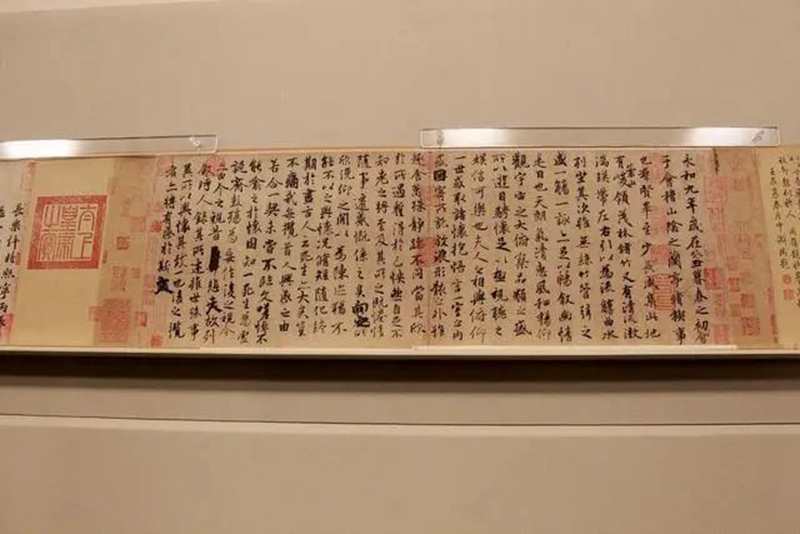 永和九年歲在癸丑暮春之初會
于會稽山陰之蘭亭脩禊事
也羣賢畢至少長咸集此地
有崇山峻領茂林脩竹又有清流激
湍暎帶左右引以為流觴曲水
列坐其次雖無絲竹管弦之
盛一觴一詠亦足以暢敘幽情
是日也天朗氣清惠風和暢仰
觀宇宙之大俯察品類之盛
所以遊目騁懷足以極視聽之
娛信可樂也夫人之相與俯仰
一世或取諸懷抱悟言一室之內
或因寄所託放浪形骸之外雖
趣舍萬殊靜躁不同當其欣
於所遇暫得於己怏然自足不
知老之將至及其所之既惓情
隨事遷感慨係之矣向之所
欣俛仰之閒以為陳迹猶不
能不以之興懷況脩短隨化終
期於盡古人云死生亦大矣豈
不痛哉每攬昔人興感之由
若合一契未嘗不臨文嗟悼不
能喻之於懷固知一死生為虛
誕齊彭殤為妄作後之視今
亦由今之視昔悲夫故列
敘時人錄其所述雖世殊事
異所以興懷其致一也後之攬
者亦將有感於斯文
長樂許將熙寧丙辰